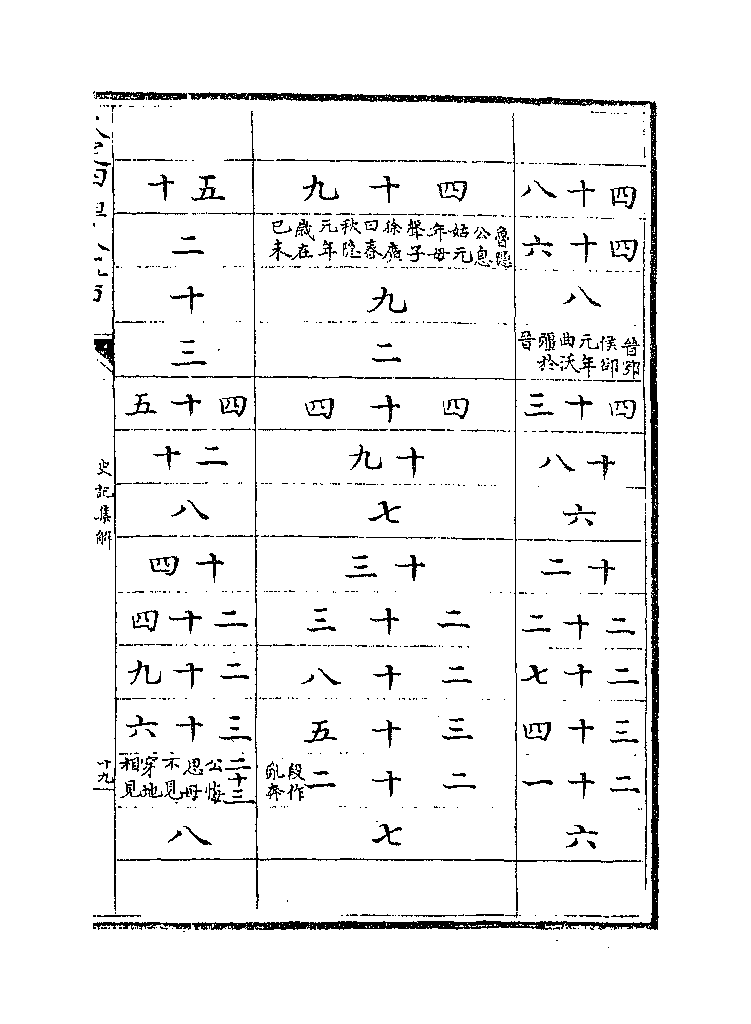 四十八
四十六
八
晉鄂侯郤元年曲沃彊於晉
四十三
十八
六
十二
二十二
二十七
三十四
二十一
六
四十九
魯隱公息姑元年母聲子徐廣曰春秋隱元年歲在己未
九
二
四十四
十九
七
十三
二十三
二十八
三十五
二十二段作亂奔
七
五十
二
十
三
四十五
二十
八
十四
二十四
二十九
三十六
二十三公悔思母不見穿地相見
八
史記集解
十九